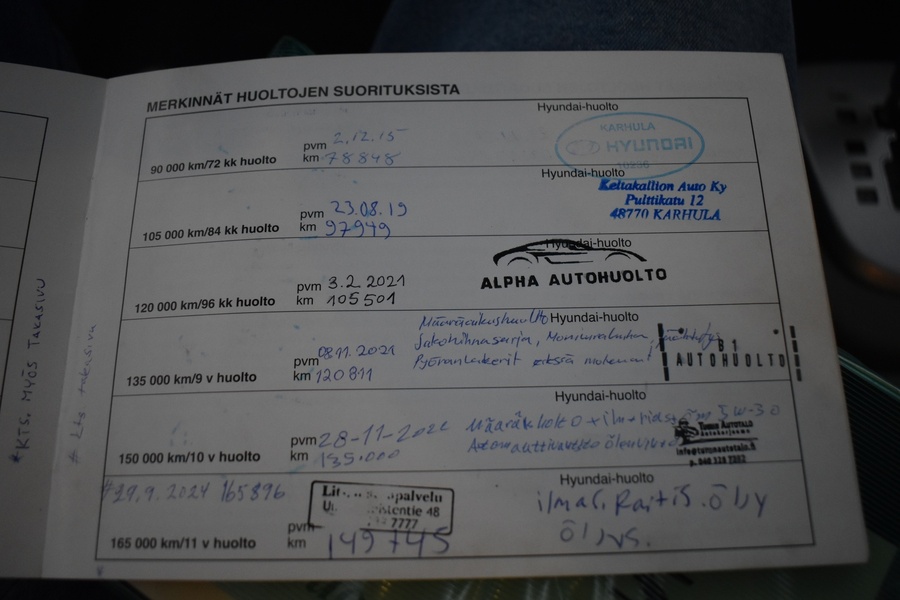 MERKINNÄT HUOLTOJEN SUORITUKSISTA
Hyundai-huolto
pvm 2.12.15
90 000 km/72 kk huolto km 78848
KARHULA
HYUNDAI
Hyundai-huolto
pvm 23.08.19
105 000 km/84 kk huolto km 97949
Keltakallion Auto Ky
Pulttikatu 12
48770 KARHULA
Hyundai-huolto
pvm 3.2.2021
120 000 km/96 kk huolto km 105501
ALPHA AUTOHUOLTO
Hyundai-huolto
Määräaikaishuolto
Jakohihnasarja, Moniurahihna,
Pyöränlaakerit
pvm 08.11.2021
135 000 km/9 v huolto km 120811
81
AUTOHUOLTO
Hyundai-huolto
pvm 28-11-2022
150 000 km/10 v huolto km 135.000
5W-30
info@turunautotalo.fi
*29.9.2024 165896
Hyundai-huolto
pvm
165 000 km/11 v huolto km 149745
48
7777
ilmas. Raitis. Öljy
*KTS. MYÖS TAKASIVU